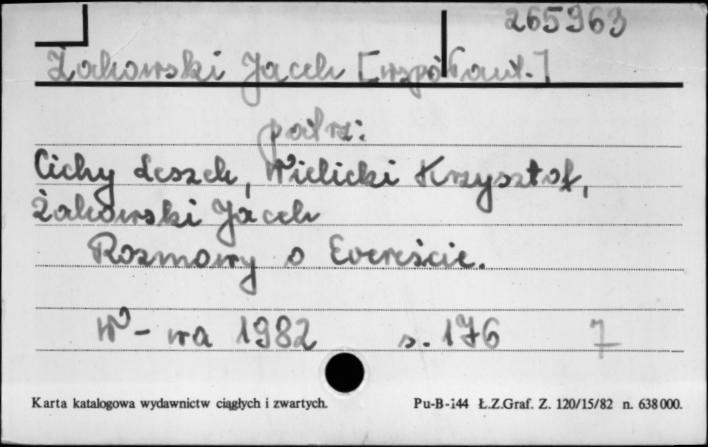 265963
Żakowski Jacek [współaut.]
patrz:
Cichy Leszek, Wielicki Krzysztof,
Żakowski Jacek
Rozmowy o Evereście.
W-wa 1982 s. 176 7
Karta katalogowa wydawnictw ciągłych i zwartych. Pu-B-144 Ł.Z.Graf. Z. 120/15/82 n. 638000.